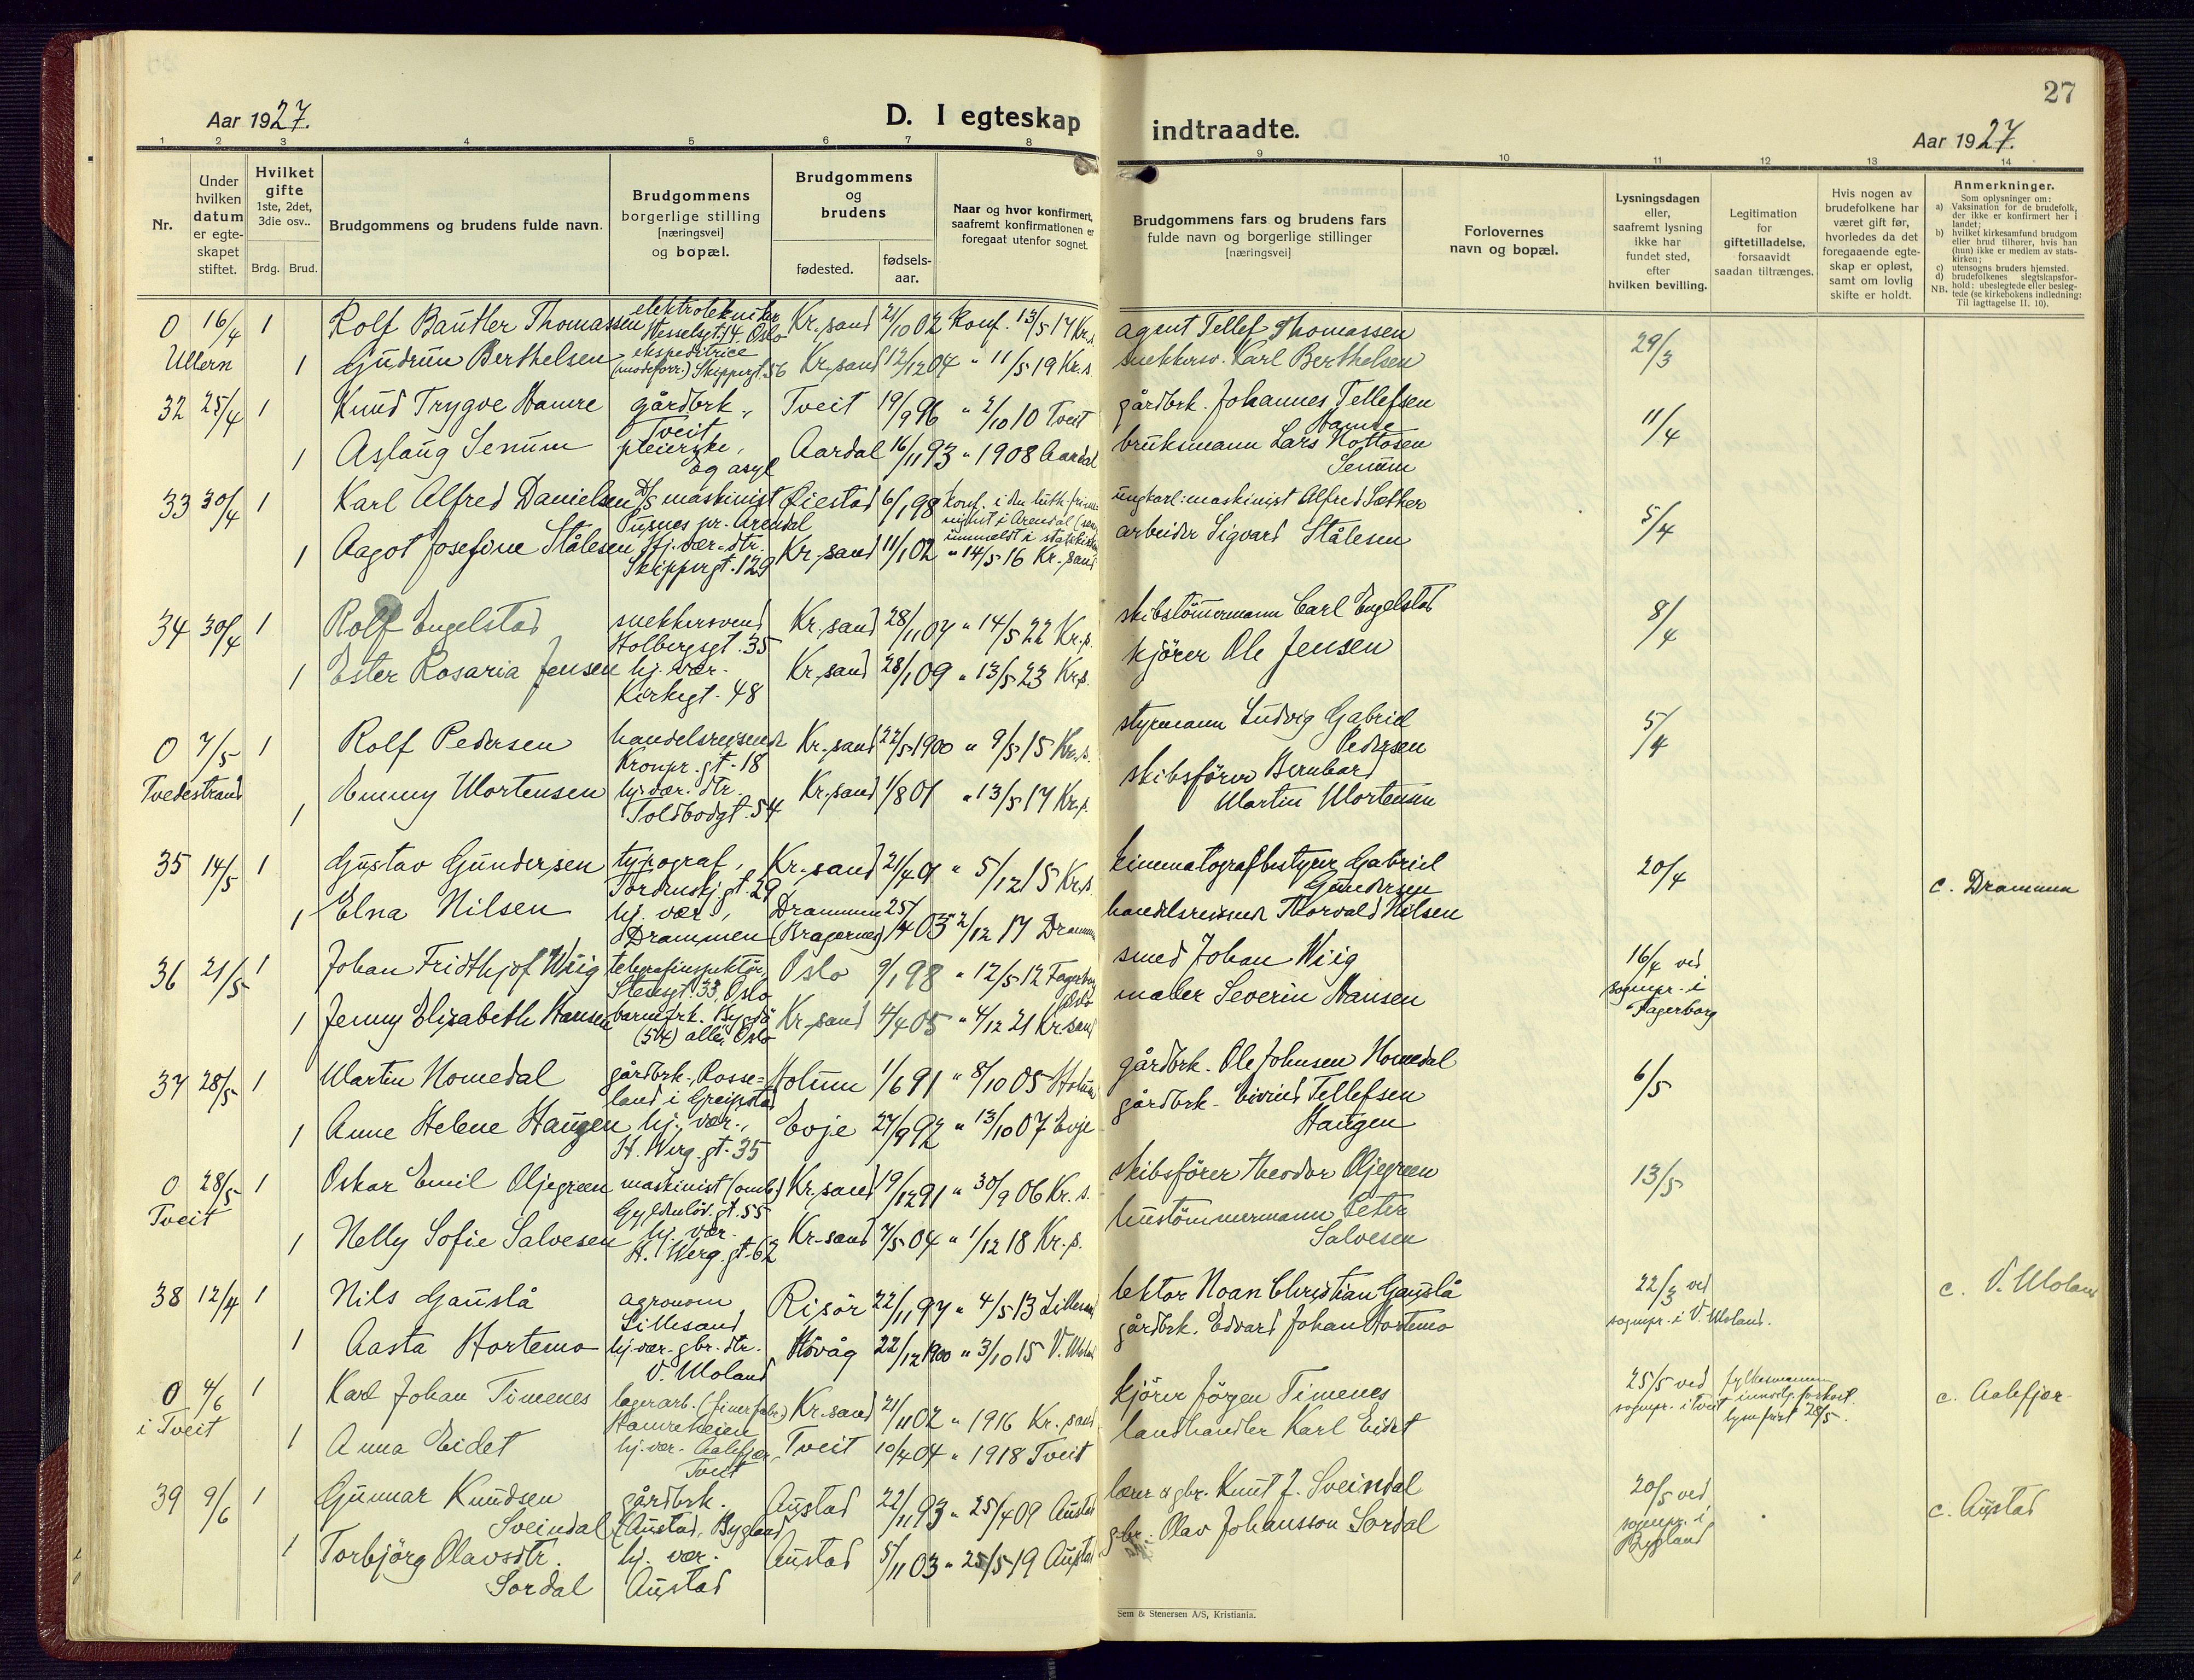 27
Aar 1927.
D. I egteskap indtraadte.
Aar 1927.
1 2 3 4 5 6 7 8 9 10 11 12 13 14
Nr.
Under hvilken datum er egte-skapet stiftet.
Hvilket gifte 1ste, 2det, 3die osv..
Brdg. Brud.
Brudgommens og brudens fulde navn.
Brudgommens borgerlige stilling [næringsvei] og bopæl.
Brudgommens og brudens
fødested.
fødsels-aar.
Naar og hvor konfirmert, saafremt konfirmationen er foregaat utenfor sognet.
Brudgommens fars og brudens fars fulde navn og borgerlige stillinger [næringsvei]
Forlovernes navn og bopæl.
Lysningsdagen eller, saafremt lysning ikke har fundet sted, efter hvilken bevilling.
Legitimation for giftetilladelse, forsaavidt saadan tiltrænges.
Hvis nogen av brudefolkene har været gift før, hvorledes da det foregaaende egte-skap er opløst, samt om lovlig skifte er holdt.
Anmerkninger.
Som oplysninger om:
a) Vaksination for de brudefolk, der ikke er konfirmert her i landet;
b) hvilket kirkesamfund brudgom eller brud tilhører, hvis han (hun) ikke er medlem av stats-kirken;
c) utensogns bruders hjemsted.
d) brudefolkenes slegtskapsfor-hold: ubeslegtede eller besleg-tede (se kirkebokens indledning: Til iagttagelse II. 10).
NB.
0 16/4 1 Rolf Bautler Thomassen elektrotekniker Hesselsgt. 14. Oslo Kr.sand 21/10 02 konf. 13/5 17 Kr.s. agent Tellef Thomassen 29/3
Ullern 1 Gudrun Berthelsen ekspeditrice Skippergt. 56 Kr.sand 12/12 04 " 11/5 19 Kr.s snekkersv. Karl Berthelsen
32 25/4 1 Knud Trygve Hamre gårdbrk, Tveit Tveit 19/9 96 " 2/10 10 Tveit gårdbrk. Johannes Tellefsen Hamre 11/4
1 Aslaug Senum pleierske, Aardal 16/11 93 " 1908 Aardal bruksmann Lars Nottosen Senum
33 30/4 1 Karl Alfred Danielsen D/S maskinist Pusnes pr. Arendal Øiestad 6/1 98 konf. i den luth. i Arendal innmeldt i ungkarl: maskinist Alfred Sæther 5/4
1 Aagot Josefine Stålesen hj. vær. dtr. Skippergt. 129 Kr.sand 11/1 02 " 14/5 16 Kr.sand arbeider Sigvard Stålesen
34 30/4 1 Rolf Engelstad snekkersvend Holbergsgt. 35 Kr.sand 28/11 07 " 14/5 22 Kr.s. skibstömmermann Carl Engelstad 8/4
1 Ester Rosaria Jensen hj. vær. Kirkegt. 48 Kr.sand 28/1 09 " 13/5 23 Kr.s. kjörer Ole Jensen
0 7/5 1 Rolf Pedersen handelsreisende Kronpr.gt. 18 Kr.sand 22/5 1900 " 9/5 15 Kr.s. styrmann Ludvig Gabriel Pedersen 5/4
Tvedestrand 1 Emmy Mortensen hj. vær. dtr. Toldbodgt. 54 Kr.sand 1/8 01 " 13/5 17 Kr.s. skibsförer Bernhard Martin Mortensen
35 14/5 1 Gustav Gundersen typograf, Tordenskj.gt. 29 Kr.sand 21/4 01 " 5/12 15 Kr.s. kinematografbestyrer Gabriel Gundersen 20/4 c. Drammen
1 Elna Nilsen hj. vær, Drammen Drammen (Bragernes) 25/4 03 " 2/12 17 Drammen handelsreisende Thorvald Nilsen
36 21/5 1 Johan Fridthjof Wiig telegrafinspektör, Stensgt. 33, Oslo Oslo 9/1 98 " 12/5 12 Fagerborg Oslo smed Johan Wiig 16/4 ved sognepr. i Fagerborg
1 Jenny Elizabeth Hansen Bygdö allé, Oslo Kr.sand 4/4 05 " 4/12 21 Kr.sand maler Severin Hansen
37 28/5 1 Martin Homedal gårdbrk., Rosse=land i Greipstad Holum 1/6 91 " 8/10 05 Holum gårdbrk. Ole Johnsen Homedal 6/5
1 Anne Helene Haugen hj. vær., H. Werg.gt. 35 Evje 27/9 92 " 13/10 07 Evje gårdbrk. Eivind Tellefsen Haugen
0 28/5 1 Oskar Emil Oljegreen maskinist (omb.) Gyldenlöv.gt. 55 Kr.sand 19/12 91 " 30/9 06 Kr.s. skibsförer Theodor Oljegreen 13/5
Tveit 1 Nelly Sofie Salvesen hj. vær. H. Werg.gt. 62 Kr.sand 7/5 04 " 1/12 18 Kr.s. hustömmermann Peter Salvesen
38 12/4 1 Nils Gauslå agronom, Lillesand Risör 22/11 97 " 4/5 13 Lillesand lektor Noan Christian Gauslå 22/3 ved sognepr. i V. Moland. c. V. Moland
1 Aasta Hortemo hj. vær. gbr. dtr. V. Moland Hövåg 22/12 1900 " 3/10 15 V. Moland gårdbrk. Edvard Johan Hortemo
0 4/6 1 Karl Johan Timenes lagerarb. (finerfabr.) Hamreheien Kr.sand 21/11 02 " 1916 Kr.sand kjörer Jörgen Timenes 25/5 ved sognepr. i Tveit fylkesmannen lysn. först 28/5. c. Aalefjær.
i Tveit 1 Anna Eidet hj. vær. Aalefjær, Tveit Tveit 10/4 04 " 1918 Tveit landhandler Karl Eidet
39 9/6 1 Gunnar Knudsen Sveindal gårdbrk. (Austad, Bygland Austad 22/11 93 " 25/4 09 Austad lærer & gbr. Knut J. Sveindal 20/5 ved sognepr. i Bygland c. Austad
1 Torbjörg Olavsdtr. Sordal hj. vær. Austad Austad 5/11 03 " 25/5 19 Austad gbr. Olav Johansson Sordal
Sem & Stenersen A/S, Kristiania.